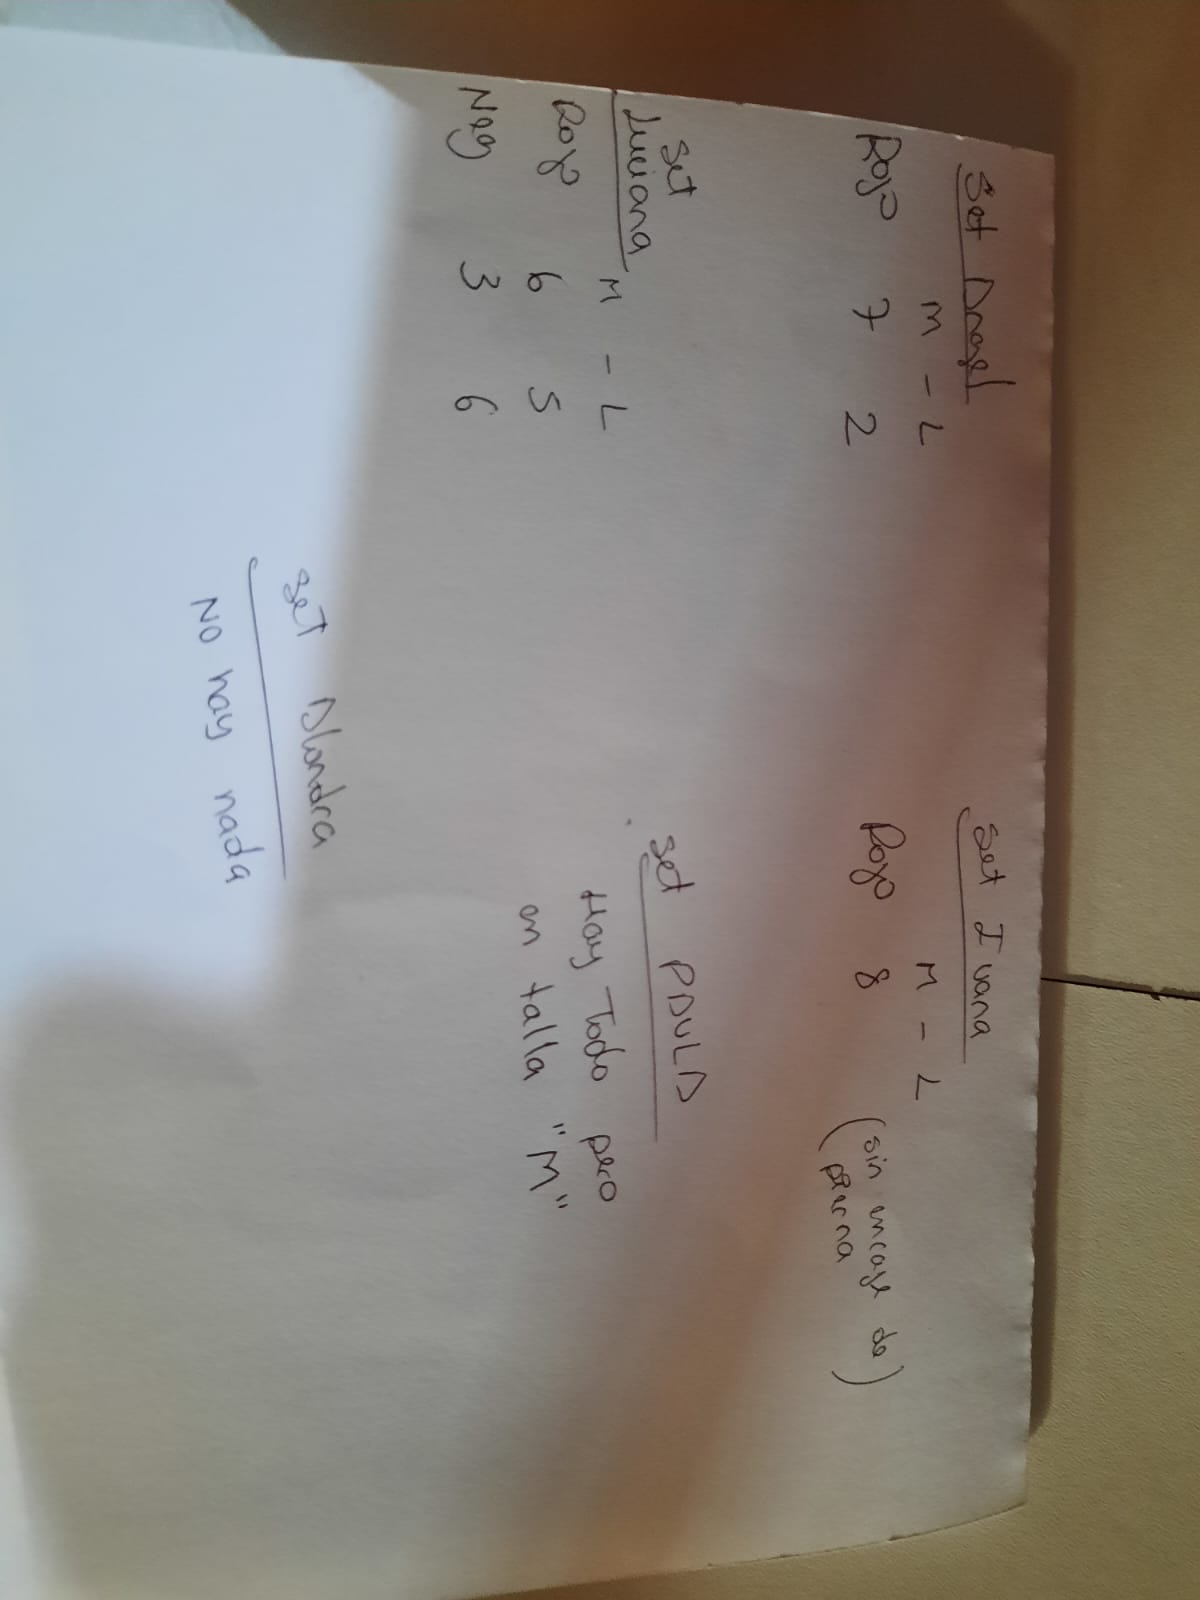 Set Angel
M - L
Rojo 7 2
Set Ivana
M - L
Rojo 8 (sin encaje de
pierna)
Set
Luciana
M - L
Rojo 6 5
Neg 3 6
set PAULA
Hay Todo pero
en talla "M"
set Alondra
No hay nada